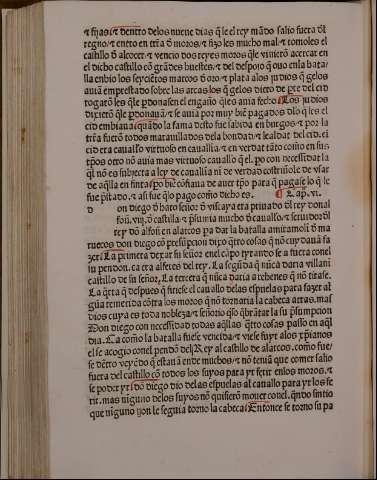 ⁊ fijas/⁊ dentro delos nueue dias q̄ le el rey mādo salio fuera dl̄
regno/⁊ entro en trr̄a d̄ moros/⁊ fizo les mucho mal/⁊ tomoles el
castillo d̄ alcocer/⁊ vencio dos reyes moros q̄le vinierō acercar en
el dicho castillo cō grādes huestes/⁊ del despojo q̄ ouo enla bata/
lla enbio los seyciētos marcos d̄ oro/⁊ plata alos judios q̄ gelos
auiā emprestado sobre las arcas los q̄ gelos diero de pr̄te del cid
rogarō les q̄le pdonasen el engaño q̄les auia fecho. Los judios
dixierō q̄le pdonauā/⁊ se auia por muy biē pagados dlo q̄ les el
cid embiaua/quādo la fama desto fue sabida en burgos/⁊ por la
trr̄a fuerō todos marauillados dela bondad/⁊ lealtad del cid. ei
cid era cauallo virtuoso en caualĺia/⁊ en verdat tāto comō en sus
tp̄os otro nō auia mas virtuoso cauallo q̄ el. po con necessidat la
q̄l nō es subjecta a ley de caualĺia ni de verdad costriñole de vsar
de aq̄lla en finta/po biē cōfiaua de auer tp̄o para q̄ pagase lo q̄ le
fue p̄stado. ⁊ asi fue q̄lo pago como dicho es. ¶ Cap. vi.
d on diego d̄ haro señor d̄ viscaya era priuado dl̄ rey donal
foñ. viij. d̄ castilla/⁊ p̄sumia mucho d̄ cauallo/⁊ seruidor dl̄
rey dō alfoñ en alarcos pa dar la batalla amiramolī d̄ ma
ruecos don diego cō presūpcion dixo q̄tro cosas q̄ nō cuydaua fa
zer/La primera dexar su señor enel cāpo tyrando se a fuera conel
su pendon. ca era alferes del rey. La segūda q̄ nūca daria villani
castillo de su señor. La tercera q̄ nūca daria arehenes q̄ nō tirase.
La q̄rta q̄ despues q̄ firiese el cauallo delas espuelas para fazer al
gūa arremetida cōtra los moros q̄ nō tornaria la cabeca atras. mas
dios cuya es toda nobleza/⁊ señorio q̄so q̄brātar la su p̄sumpcion
Don diego con necessidad todas aq̄llas q̄tro cosas passo en aq̄l
dia. Ca como la batalla fuese vencida/⁊ viese fuyr alos xp̄ianos
el se acogio conel pendō del Rey al castillo de alarcos. como fue/
se dētro veyēdo q̄ estauā ende muchos/⁊ nō teniā que comer salio
fuera del castillo cō todos los suyos para yr ferir enlos moros. ⁊
se poder yr/dō diego dio delas espuelas al cauallo para yr los fe
rir. mas niguno delos suyos nō quisierō mouer conel. q̄ndo sintio
que niguno non le seguia torno la cabeca/Entonce se torno pa